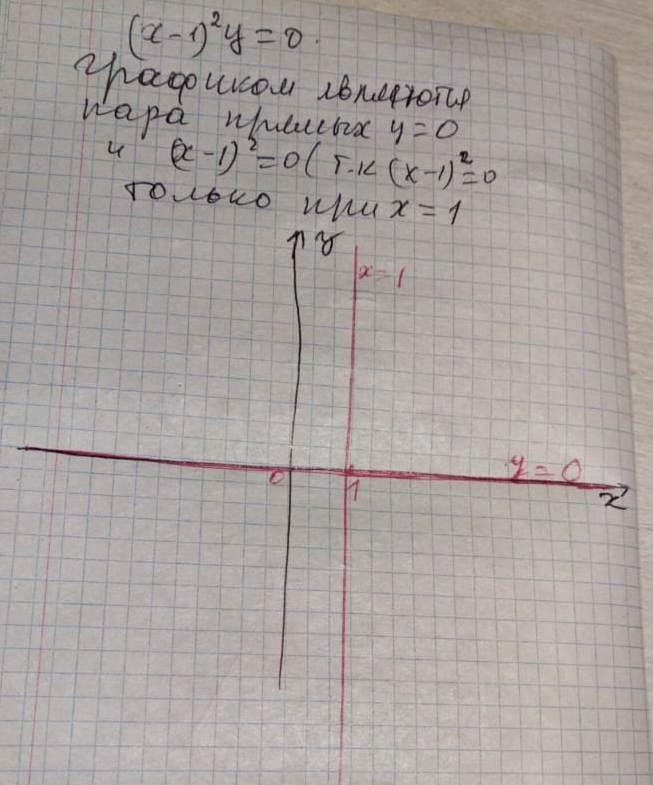 (x-1)²y=0.
графиком являются
пара прямых y=0
и (x-1)²=0 (т.к (x-1)²=0
только при x=1
y
x=1
y=0
0
1
x